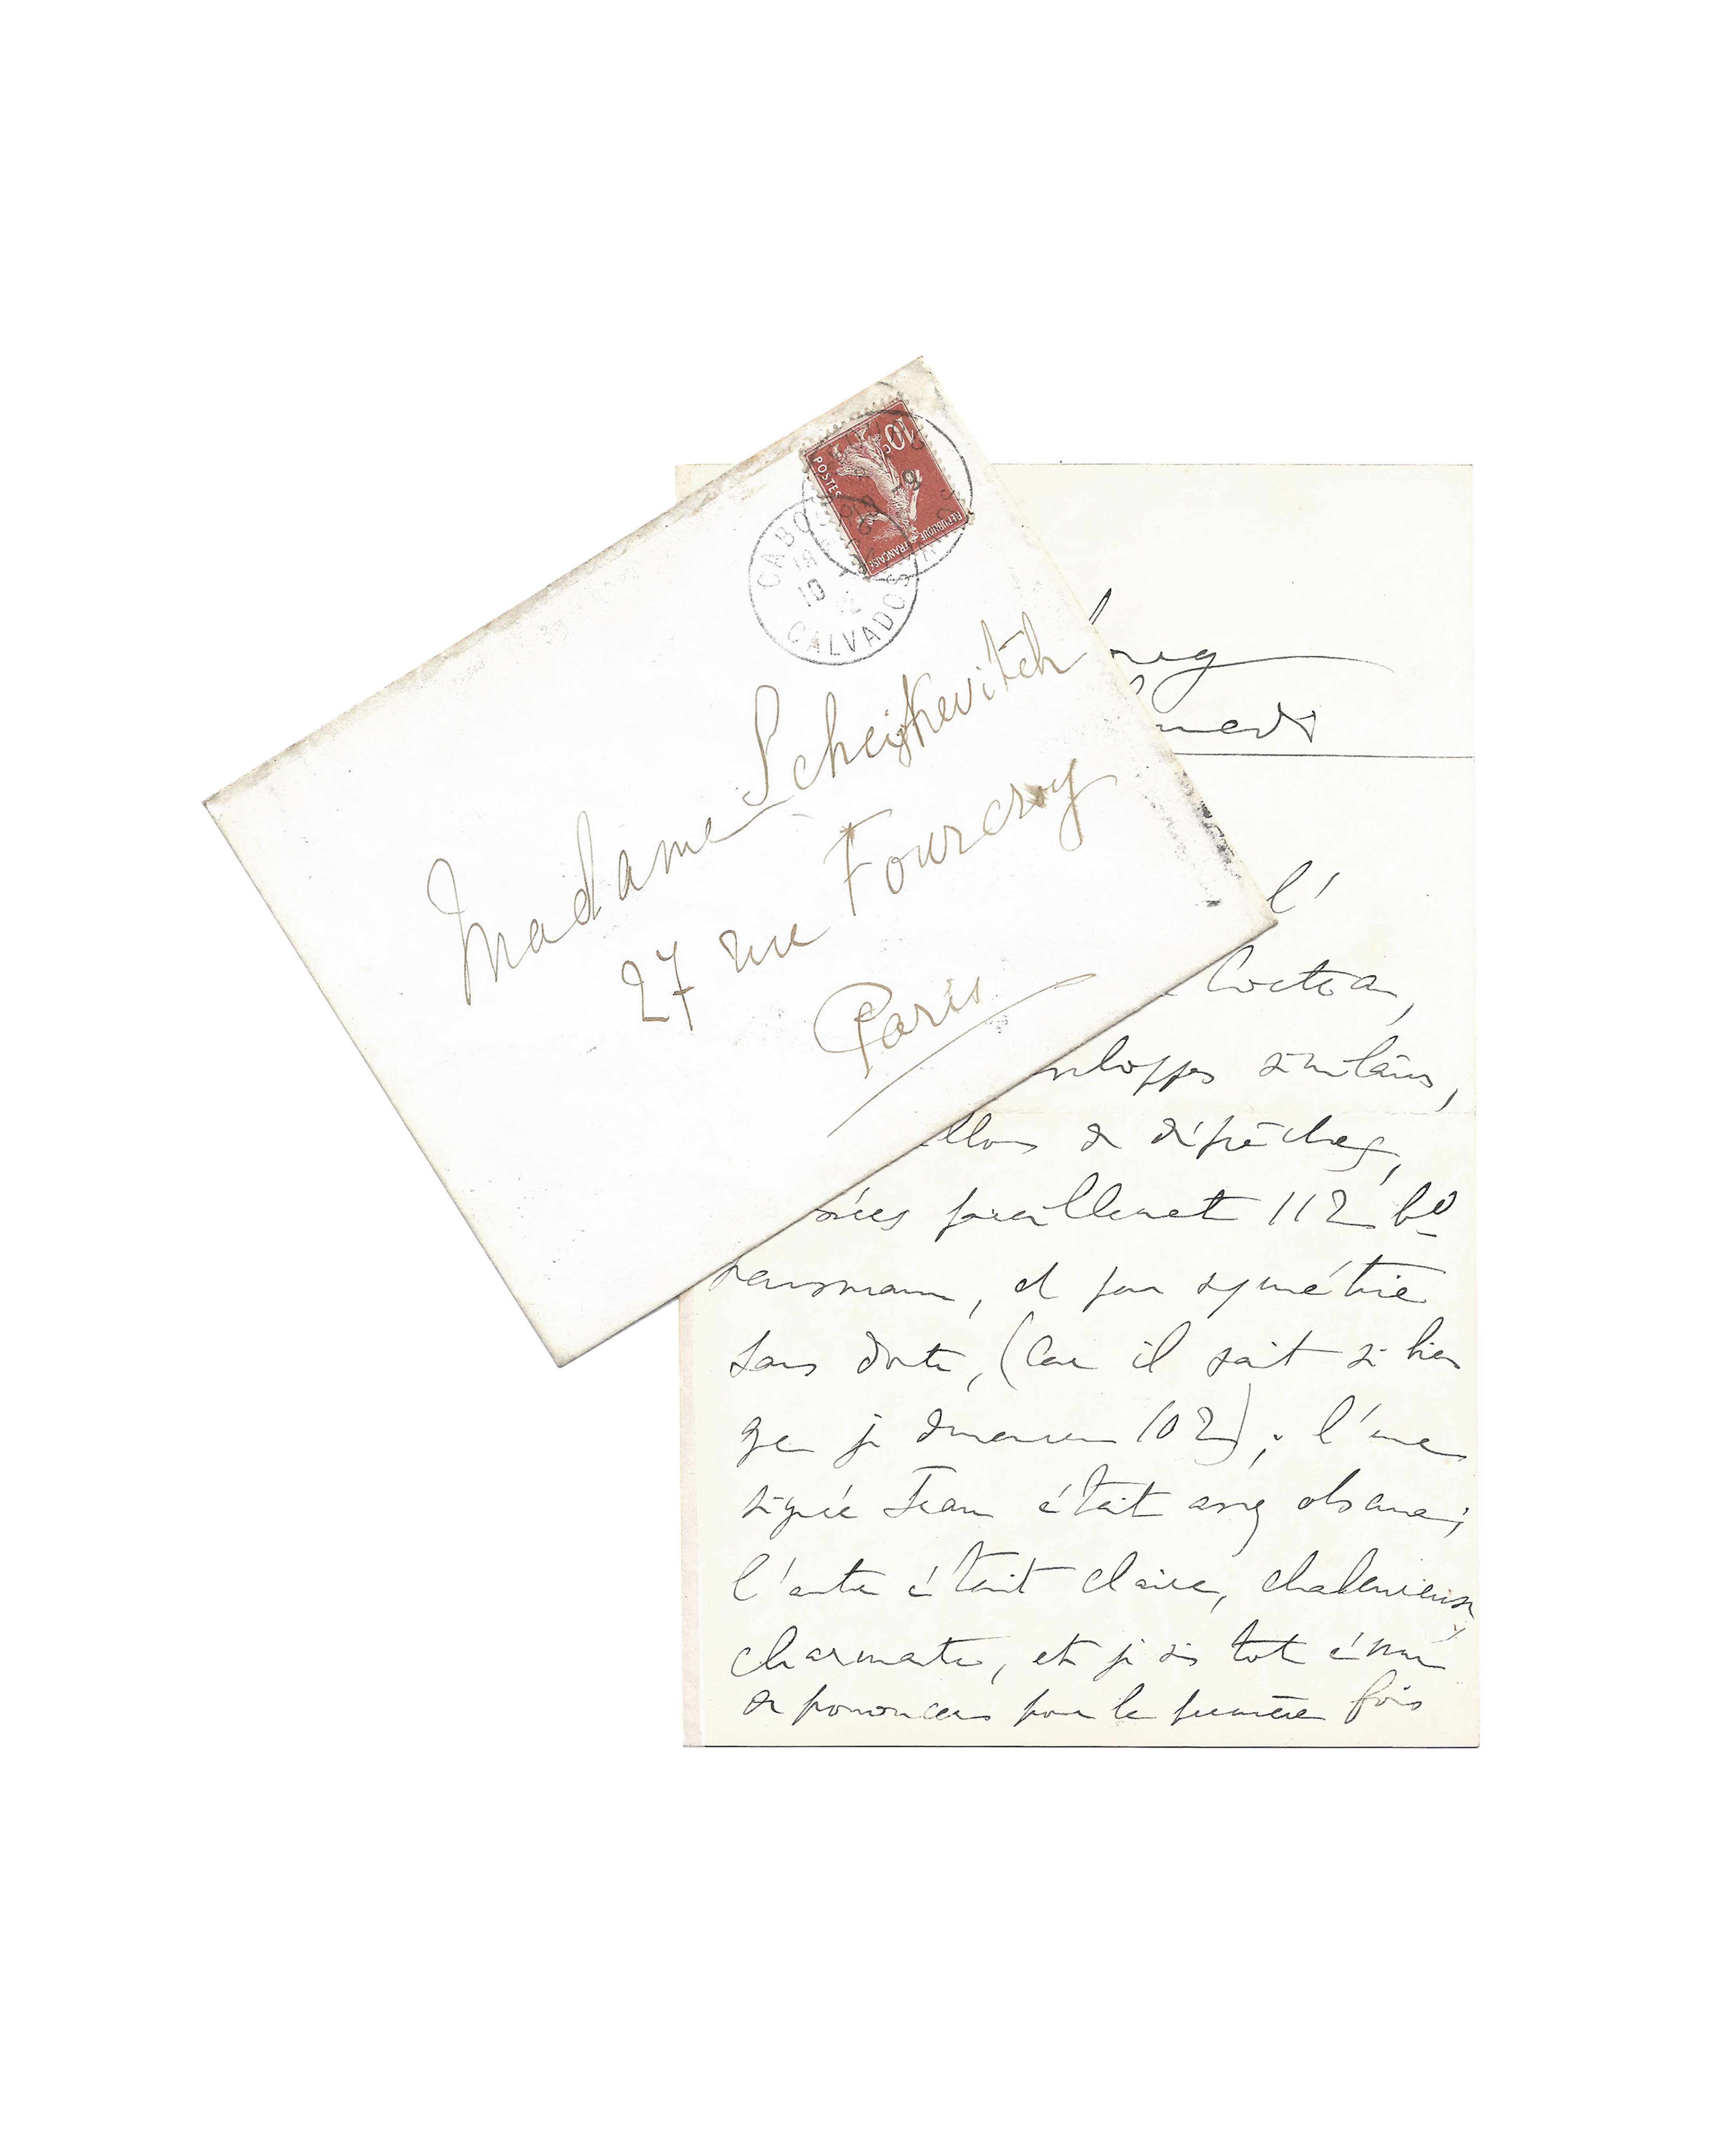 10c
POSTES
REPUBLIQUE FRANCAISE
CABO
18
10
12
CALVADOS
Madame Scheikevitch
27 rue Fourcroy
Paris
l'
Cocteau,
nveloppes similaires,
de dépêches,
pareillement 112 bd
haussmann, et par symétrie
sans doute, (car il sait si bien
que je demeure 102); l'une
signée Jean était assez obscure;
l'autre était claire, chaleureuse,
charmante, et je suis tout ému
de prononcer pour la première fois